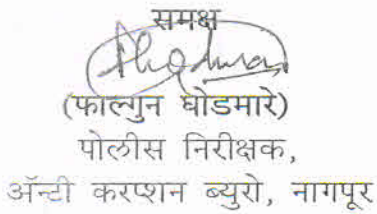 समक्ष
(फाल्गुन घोडमारे)
पोलीस निरीक्षक,
ॲन्टी करप्शन ब्युरो, नागपूर